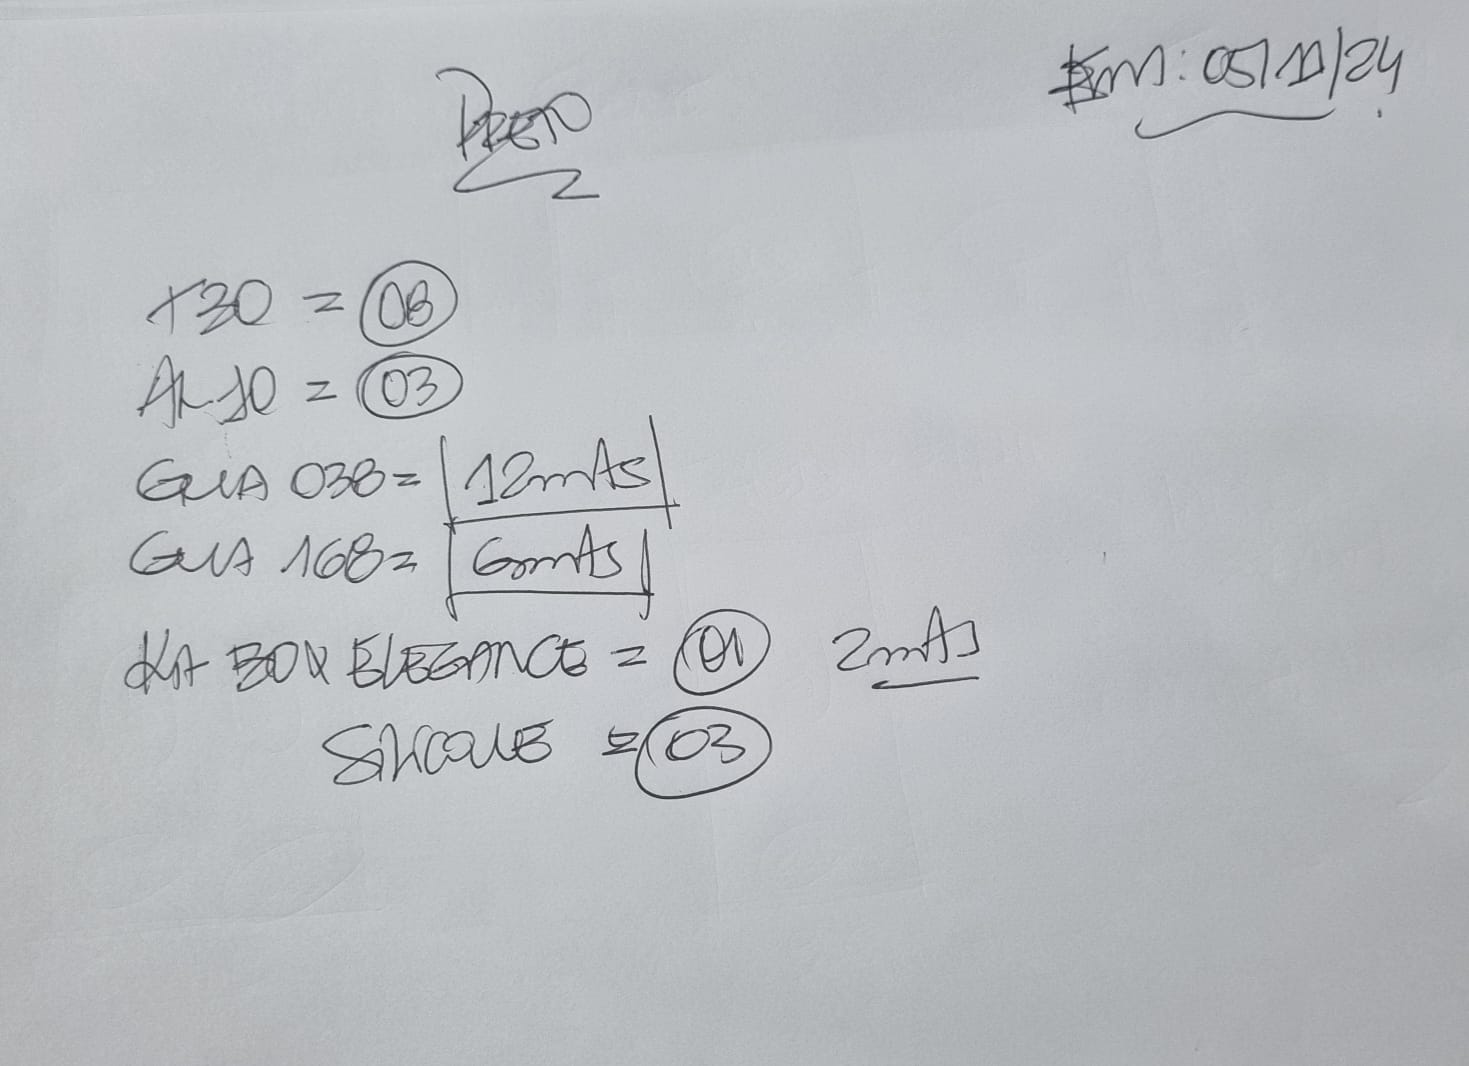 PRETO
Em: 05/11/24
T30 = 08
AL 10 = 03
GUA 038 = 12mts
GUA 168 = 6mts
Kit BOX ELEGANCE = 01 2mts
SILICONE = 03